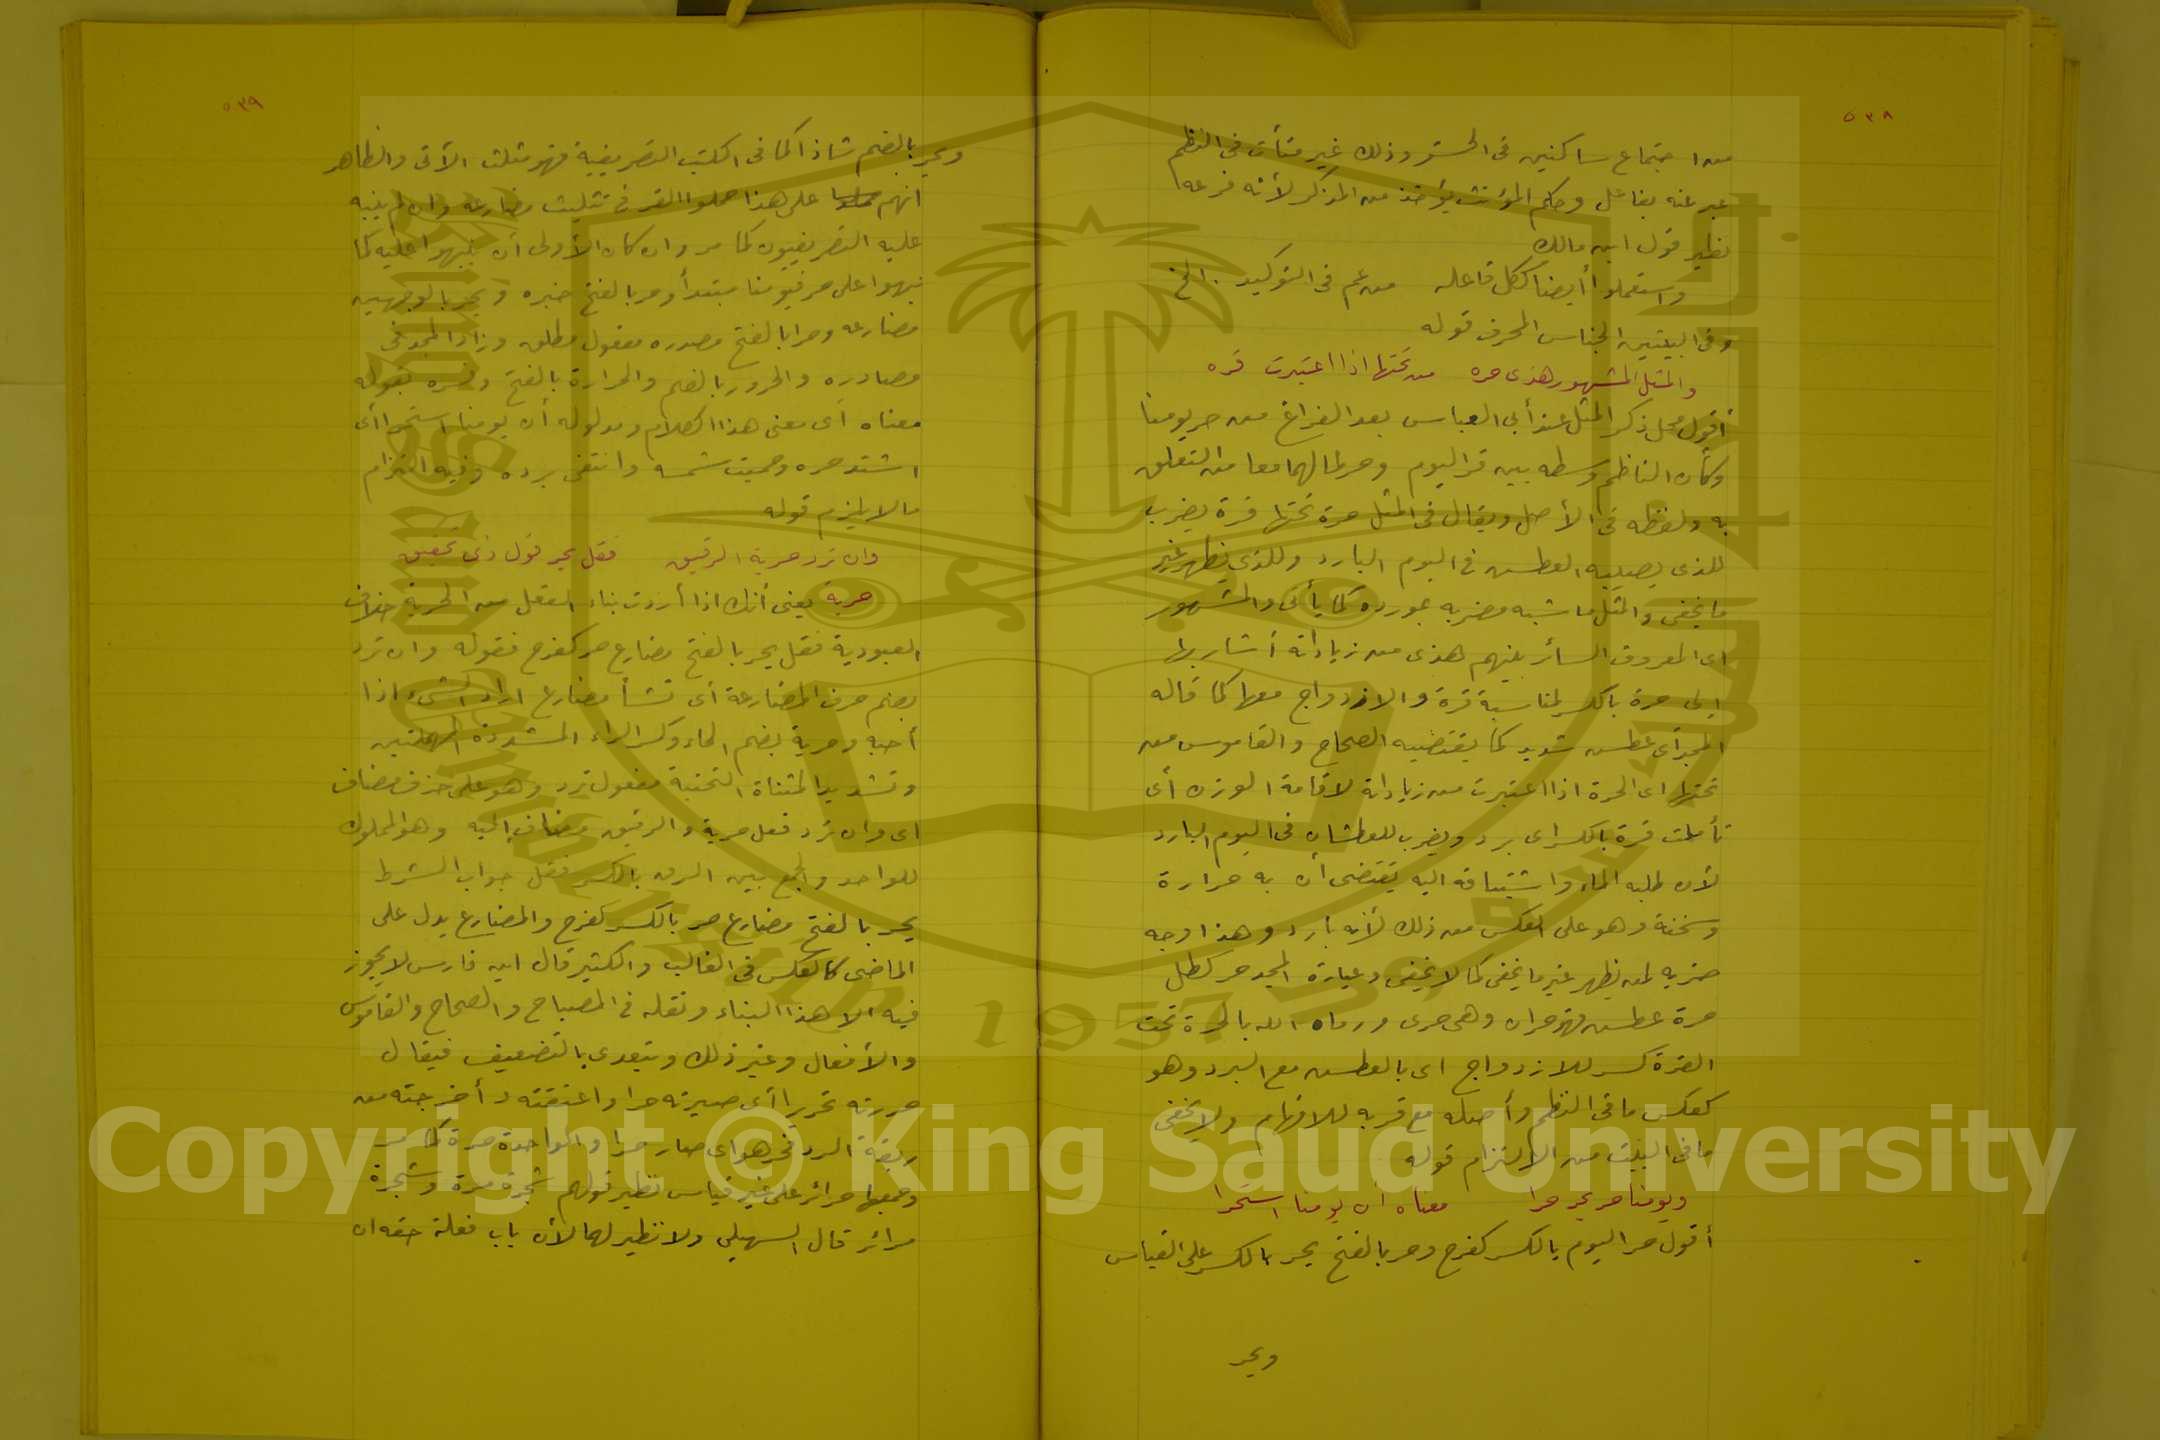 ٥٣٨
من اجتماع ساكنين فى الحشو وذلك غير متأت فى النظم
عبر عنه بفاعل وحكم المؤنث يؤخذ من المذكر لأنه فرعه
نظير قول ابن مالك
واستعملوا أيضا ككل فاعله من عم فى التوكيد . الخ
وفى البيتين الجناس المحرف قوله
والمثل المشهور هذى حره من تحتها اذا اعتبرت قره
أقول محل ذكر المثل عند أبى العباس بعد الفراغ من حر يومنا
وكأن الناظم وسطه بين قر اليوم وحر لما لهما معا من التعلق
به ولفظه فى الأصل ويقال فى المثل حرة تحتها قرة يضرب
للذى يصيبه العطس فى اليوم البارد وللذى يظهر غير
ما يخفى والمثل ما شبه مضربه بمورده كما يأتى والمشهور
اى المعروف السائر بينهم هذى من زياداته أشار بها
إلى حرة بالكسر لمناسبة قرة والازدواج معها كما قاله
المجد أى عطس شديد كما يقتضيه الصحاح والقاموس من
تحتها اى الحرة اذا اعتبرت من زياداته لاقامة الوزن أى
تأملت قرة بالكسر اى برد ويضرب للعطشان فى اليوم البارد
لأن طلبه الماء واشتياقه اليه يقتضى أن به حرارة
وسخنة وهو على العكس من ذلك لأنه بارد وهذا وجه
ضربه لمن يظهر غير ما يخفى كما لا يخفى وعبارة المجد حر كظل
حرة عطس فهو حران وهى حرى ورماه الله بالحرة تحت
القرة كسر للازدواج اى بالعطس مع البرد وهو
كعكس ما فى النظم وأصله مع قربه للافهام ولا يخفى
ما فى البيت من الالتزام قوله
ويومنا حر يحر حرا معناه ان يومنا استحرا
أقول حر اليوم بالكسر كفرح وحر بالفتح يحر بالكسر على القياس
ويحر
٥٣٩
ويحر بالضم شاذا كما فى الكتب التصريفية فهو مثلث الآتى والظاهر
انهم على هذا حملوا القر فى تثليث مضارعه وان لم ينبه
عليه التصريفيون كما مر وان كان الأولى أن ينبهوا عليه كما
نبهوا على حر فيومنا مبتدأ وحر بالفتح خبره ويحر بالوجهين
مضارعه وحرا بالفتح مصدره مفعول مطلق وزاد المجد فى
مصادره والحرور بالضم والحرارة بالفتح وفسره بقوله
معناه أى معنى هذا الكلام ومدلوله أن يومنا استحرا أى
اشتد حره وحميت شمسه وانتفى برده وفيه التزام
ما لا يلزم قوله
وان ترد حرية الرقيق فقل يحر قول ذى تحقيق
حرية يعنى أنك اذا أردت بناء الفعل من الحرية خلاف
العبودية فقل يحر بالفتح مضارع حر كفرح فقوله وان ترد
بضم حرف المضارعة أى تشأ مضارع اراد الشىء اذا
أحبه وحرية بضم الحاء وكسر الراء المشددة المهملتين
وتشديد المثناة التحتية مفعول ترد وهو على حذف مضاف
اى وان ترد فعل حرية والرقيق مضاف إليه وهو المملوك
للواحد والجمع بين الرق بالكسر فقل جواب الشرط
يحر بالفتح مضارع حر بالكسر كفرح والمضارع يدل على
الماضى كالعكس فى الغالب والكثير قال ابن فارس لا يجوز
فيه الا هذا البناء ونقله فى المصباح والصحاح والقاموس
والأفعال وغير ذلك ويتعدى بالتضعيف فيقال
حررته تحريرا أى صيرته حرا واعتقته وأخرجته من
ربقة الرد فحر هو اى صار حرا والواحدة حرة كما مر
وجمعها حرائر على غير قياس نظير قولهم شجرة مرة وشجرة
مرائر قال السهيلى ولا نظير لهما لأن باب فعلة حقه ان
Copyright © King Saud University
1957